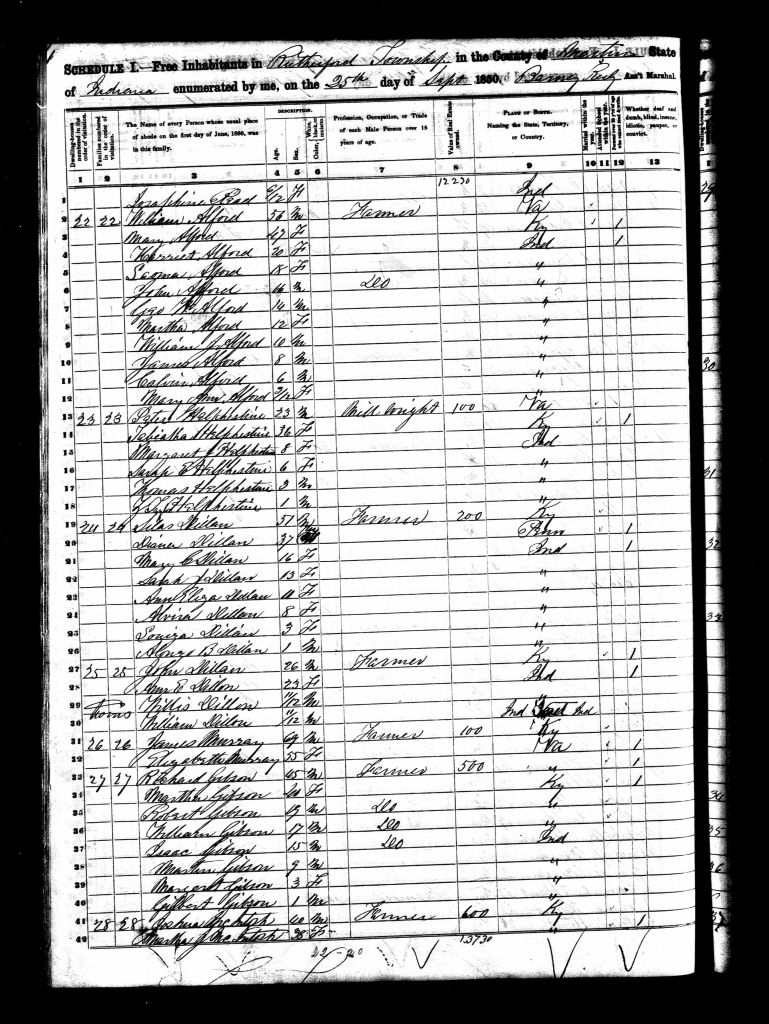 SCHEDULE I.—Free Inhabitants in Rutherford Township in the County of Martin State
of Indiana enumerated by me, on the 25th day of Sept 1850. Ass't Marshal.
Dwelling-houses numbered in the order of visitation.
Families numbered in the order of visitation.
The Name of every Person whose usual place of abode on the first day of June, 1850, was in this family.
DESCRIPTION.
Age.
Sex.
Profession, Occupation, or Trade of each Male Person over 15 years of age.
Value of Real Estate owned.
PLACE OF BIRTH.
Naming the State, Territory, or Country.
Married within the year.
Whether deaf and dumb, blind, insane, idiotic, pauper, or convict.
1 2 3 4 5 6 7 8 9 10 11 12 13
12230
1 Josephine Read 6/12 F Ind
2 22 22 William Alford 56 M Farmer Va
3 Mary Alford 47 F Ky 1
4 Harriet Alford 20 F Ind 1
5 Alford 18 F "
6 John Alford 16 M Do "
7 Geo W Alford 14 M "
8 Martha Alford 12 F "
9 William J Alford 10 M "
10 James Alford 8 M "
11 Calvin Alford 6 M "
12 Mary Ann Alford 2/12 F "
13 23 23 Peter Helphestine 23 M Mill Wright 100 Va
14 Tabiatha Helphestine 36 F Ky 1
15 Margaret J Helphestine 8 F Ind
16 Sarah E Helphestine 6 F "
17 Thomas Helphestine 3 M "
18 Helphestine 1 M "
19 24 24 Silas Dillan 51 M Farmer 200 Ky
20 Dianer Dillan 37 Penn 1
21 Mary C Dillan 16 F Ind 1
22 Sarah J Dillan 13 F "
23 Ann Eliza Dillan 11 F "
24 Alvira Dillan 8 F "
25 Louiza Dillan 3 F "
26 Alonzo B Dillan 1 M "
27 25 25 John Dillan 26 M Farmer Ky 1
28 Ann E Dillon 23 F Ind 1
29 Willis Dillon 11/12 M "
30 William Dillon 11/12 M Ind Ind
31 26 26 James Murray 69 M Farmer 100 Ky
32 Elizabeth Murray 55 F Va 1
33 27 27 Richard Gibson 45 M Farmer 500 " 1
34 Martha Gibson F Ky 1
35 Robert Gibson 19 M Do "
36 William Gibson 17 M Do "
37 Isaac Gibson 15 M Do Ind
38 Martin Gibson 9 M "
39 Margaret Gibson 3 F "
40 Gilbert Gibson 1 M "
41 28 28 Joshua McIntosh 40 M Farmer 600 Ky
42 Martha J McIntosh 38 F " 1
13730